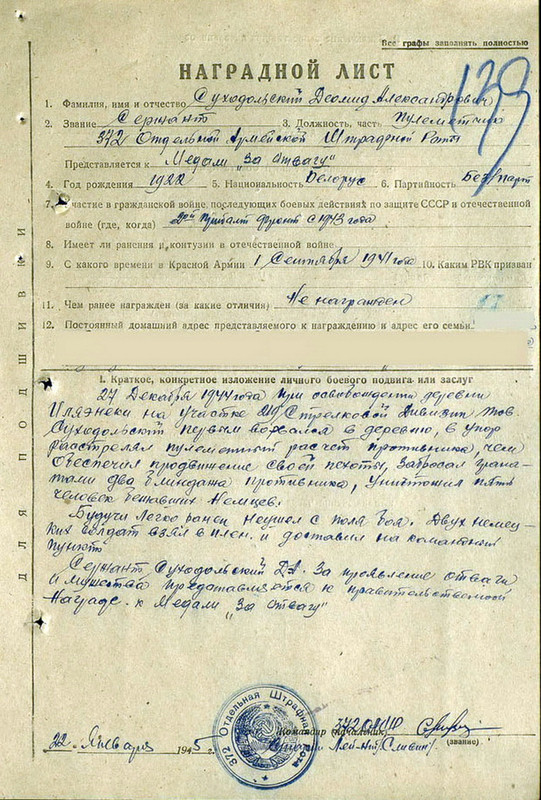 Все графы заполнять полностью
139
НАГРАДНОЙ ЛИСТ
1. Фамилия, имя и отчество Суходольский Деомид Александрович
2. Звание Сержант 3. Должность, часть Пулеметчик
372 Отдельной Армейской Штрафной Роты
Представляется к Медали „За отвагу“
4. Год рождения 1922 5. Национальность Белорус 6. Партийность Без/парт
7. Участие в гражданской войне, последующих боевых действиях по защите СССР и отечественной
войне (где, когда) 2ой Прибалт фронт с 1943 года
8. Имеет ли ранения и контузии в отечественной войне
9. С какого времени в Красной Армии 1 Сентября 1941 года 10. Каким РВК призван
11. Чем ранее награжден (за какие отличия) Не награжден
12. Постоянный домашний адрес представляемого к награждению и адрес его семьи
I. Краткое, конкретное изложение личного боевого подвига или заслуг
27 Декабря 1944 года при освобождении деревни
на участке Стрелковой Дивизии тов.
Суходольский первым ворвался в деревню, в упор
расстрелял пулеметный расчет противника, чем
обеспечил продвижение своей пехоты, забросал грана-
тами два блиндажа противника, уничтожил пять
человек бежавших Немцев.
Будучи легко ранен неушел с поля боя. Двух немец-
ких солдат взял в плен и доставил на командный
пункт
Сержант Суходольский Д.А. за проявление отваги
и мужества представляется к правительственной
Награде. к Медали „За отвагу“
372 Отдельная Штрафная Рота
Командир (начальник) 372 ОАШР
22 Января 1945 г. Лей-нт /Сливин/
(звание)
ДЛЯ ПОДШИВКИ